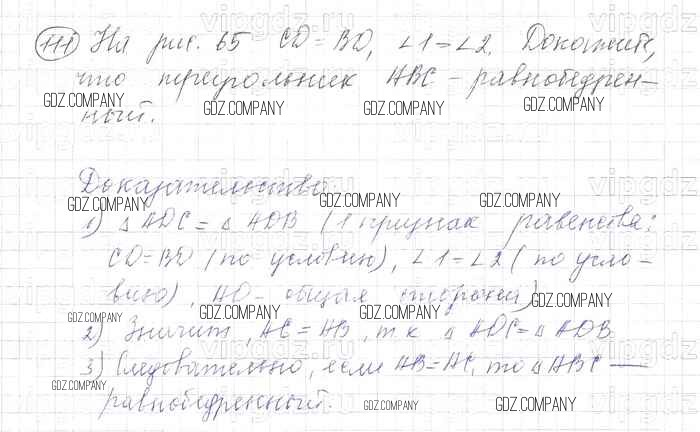 111 На рис. 65 CD = BD, ∠1 = ∠2. Докажите,
что треугольник ABC – равнобедрен-
ный.
Доказательство:
1) △ADC = △ADB (1 признак равенства:
CD = BD (по условию), ∠1 = ∠2 (по усло-
вию), AD – общая сторона)
2) Значит, AC = AB, т.к △ADC = △ADB
3) Следовательно, если AB = AC, то △ABC —
равнобедренный.
GDZ.COMPANY GDZ.COMPANY GDZ.COMPANY GDZ.COMPANY
GDZ.COMPANY GDZ.COMPANY GDZ.COMPANY
GDZ.COMPANY GDZ.COMPANY GDZ.COMPANY GDZ.COMPANY
GDZ.COMPANY GDZ.COMPANY GDZ.COMPANY
vipgdz